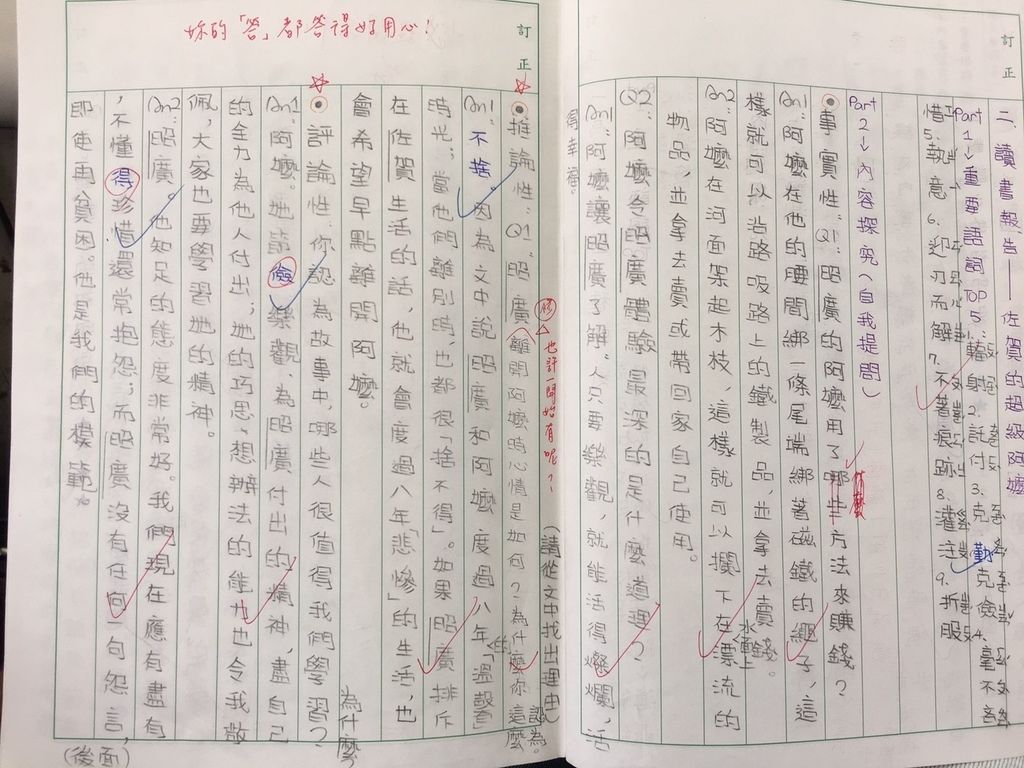 訂正
二、讀書報告——佐賀的超級阿嬤
Part 1→重要語詞 TOP 5：隻身 2.託付 3.克勤克儉 4.毫不
惜 5.執意 6.迎刃而解 7.不著痕跡 8.灌注 9.折服
Part 2→內容探究(自我提問)
事實性：Q1：昭廣的阿嬤用了哪些方法來賺錢？
什麼
An1：阿嬤在他的腰間綁一條尾端綁著磁鐵的繩子，這
樣就可以沿路吸路上的鐵製品，並拿去賣錢。
An2：阿嬤在河面架起木枝，這樣就可以攔下在水面上漂流的
物品，並拿去賣或帶回家自己使用。
Q2：阿嬤令昭廣體驗最深的是什麼道理？
An1：阿嬤讓昭廣了解：人只要樂觀，就能活得燦爛，活
得幸福。
訂正
妳的「答」都答得好用心！
(請從文中找出理由)
推論性：Q1：昭廣離開阿嬤時心情是如何？為什麼你這麼認為。
也許一開始有呢？
An1：不捨。因為文中說昭廣和阿嬤度過八年「溫馨」
時光；當他們離別時，也都很「捨不得」。如果昭廣排斥
在佐賀生活的話，他就會度過八年「悲慘」的生活，也
會希望早點離開阿嬤。
評論性：你認為故事中，哪些人很值得我們學習？為什麼
An1：阿嬤。她節儉、樂觀、為昭廣付出的精神，盡自己
的全力為他人付出；她的巧思、想辦法的能力也令我敬
佩，大家也要學習她的精神。
An2：昭廣。他知足的態度非常好。我們現在應有盡有
，不懂得珍惜還常抱怨；而昭廣沒有任何一句怨言，
即使再貧困。他是我們的模範。
(後面)